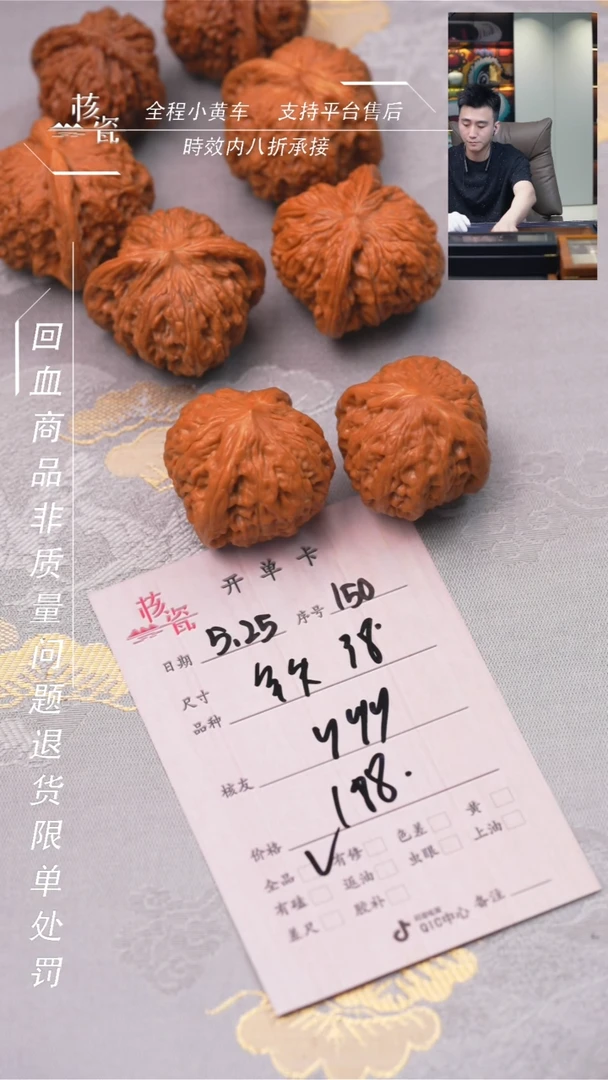 核瓷
全程小黄车 支持平台售后
時效内八折承接
回血商品非质量问题退货限单处罚
核瓷
开单卡
日期 5.25 序号 150
尺寸 38.
品种
核友 yyy
价格 198.
全品 ✓ 有修 色差 黄
有磕 返油 虫眼 上油
差尺 胶补
QIC中心 备注